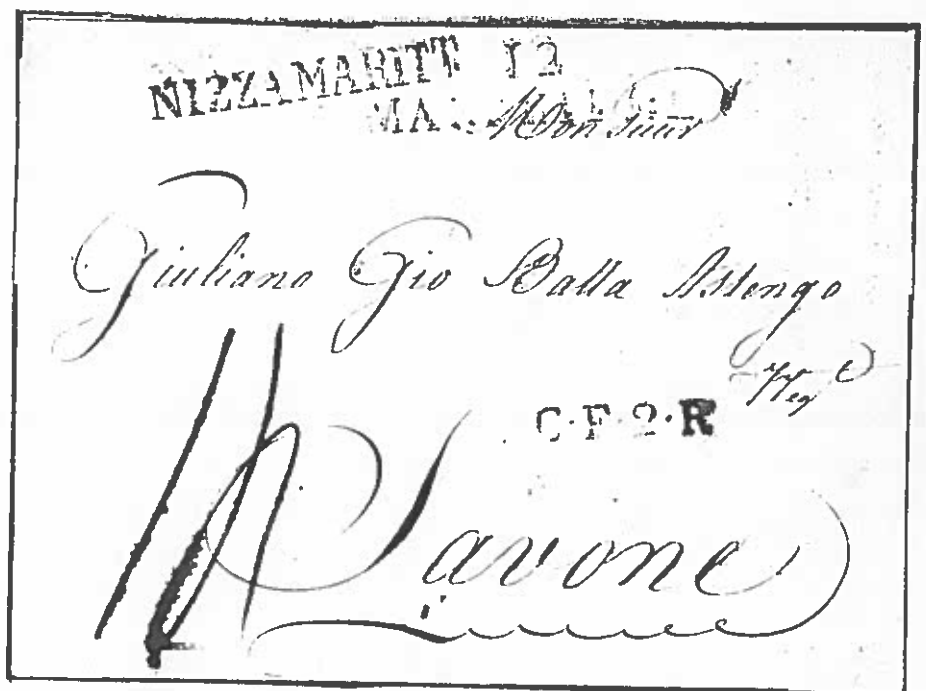 NIZZAMARITT 12
Monsieur
Giuliano Gio Batta Astengo
Neg
C·F·2·R
Savone